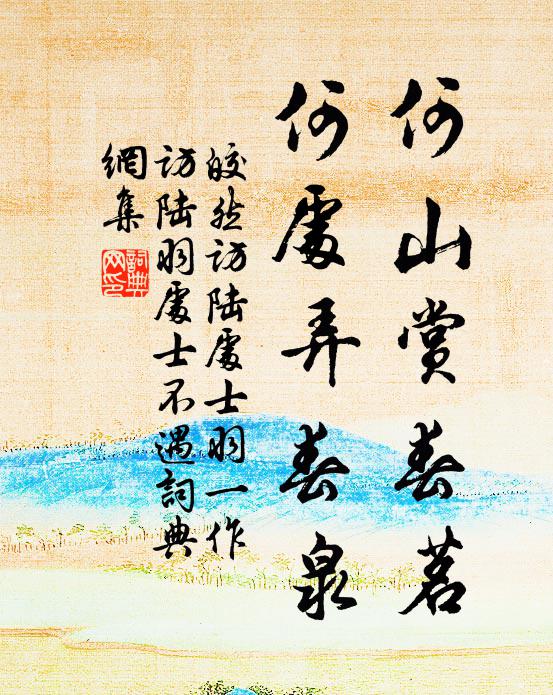 何山賞春茗
何處弄春泉
皎然訪陸處士羽一作
訪陸羽處士不遇詞典
網集
詞典
网印